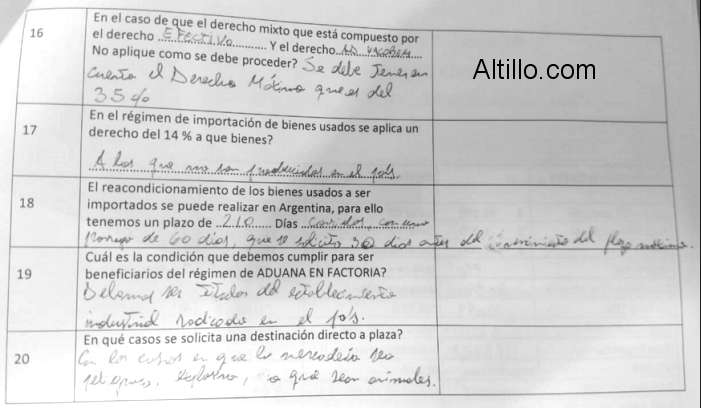 16
En el caso de que el derecho mixto que está compuesto por
el derecho Efectivo Y el derecho AD VALOREM
No aplique como se debe proceder? Se debe Tener en
Cuenta el Derecho Máximo que es del
35%
Altillo.com
17
En el régimen de importación de bienes usados se aplica un
derecho del 14 % a que bienes?
A los que no son producidos en el país.
18
El reacondicionamiento de los bienes usados a ser
importados se puede realizar en Argentina, para ello
tenemos un plazo de 210 Días corridos, con una
prorroga de 60 días, que se solicita 30 dias antes del vencimiento del plazo
19
Cuál es la condición que debemos cumplir para ser
beneficiarios del régimen de ADUANA EN FACTORIA?
Debemos ser Titular del establecimiento
industrial radicado en el país.
20
En qué casos se solicita una destinación directo a plaza?
En los casos en que la mercadería sea
peligrosa, explosiva, o que sean animales.